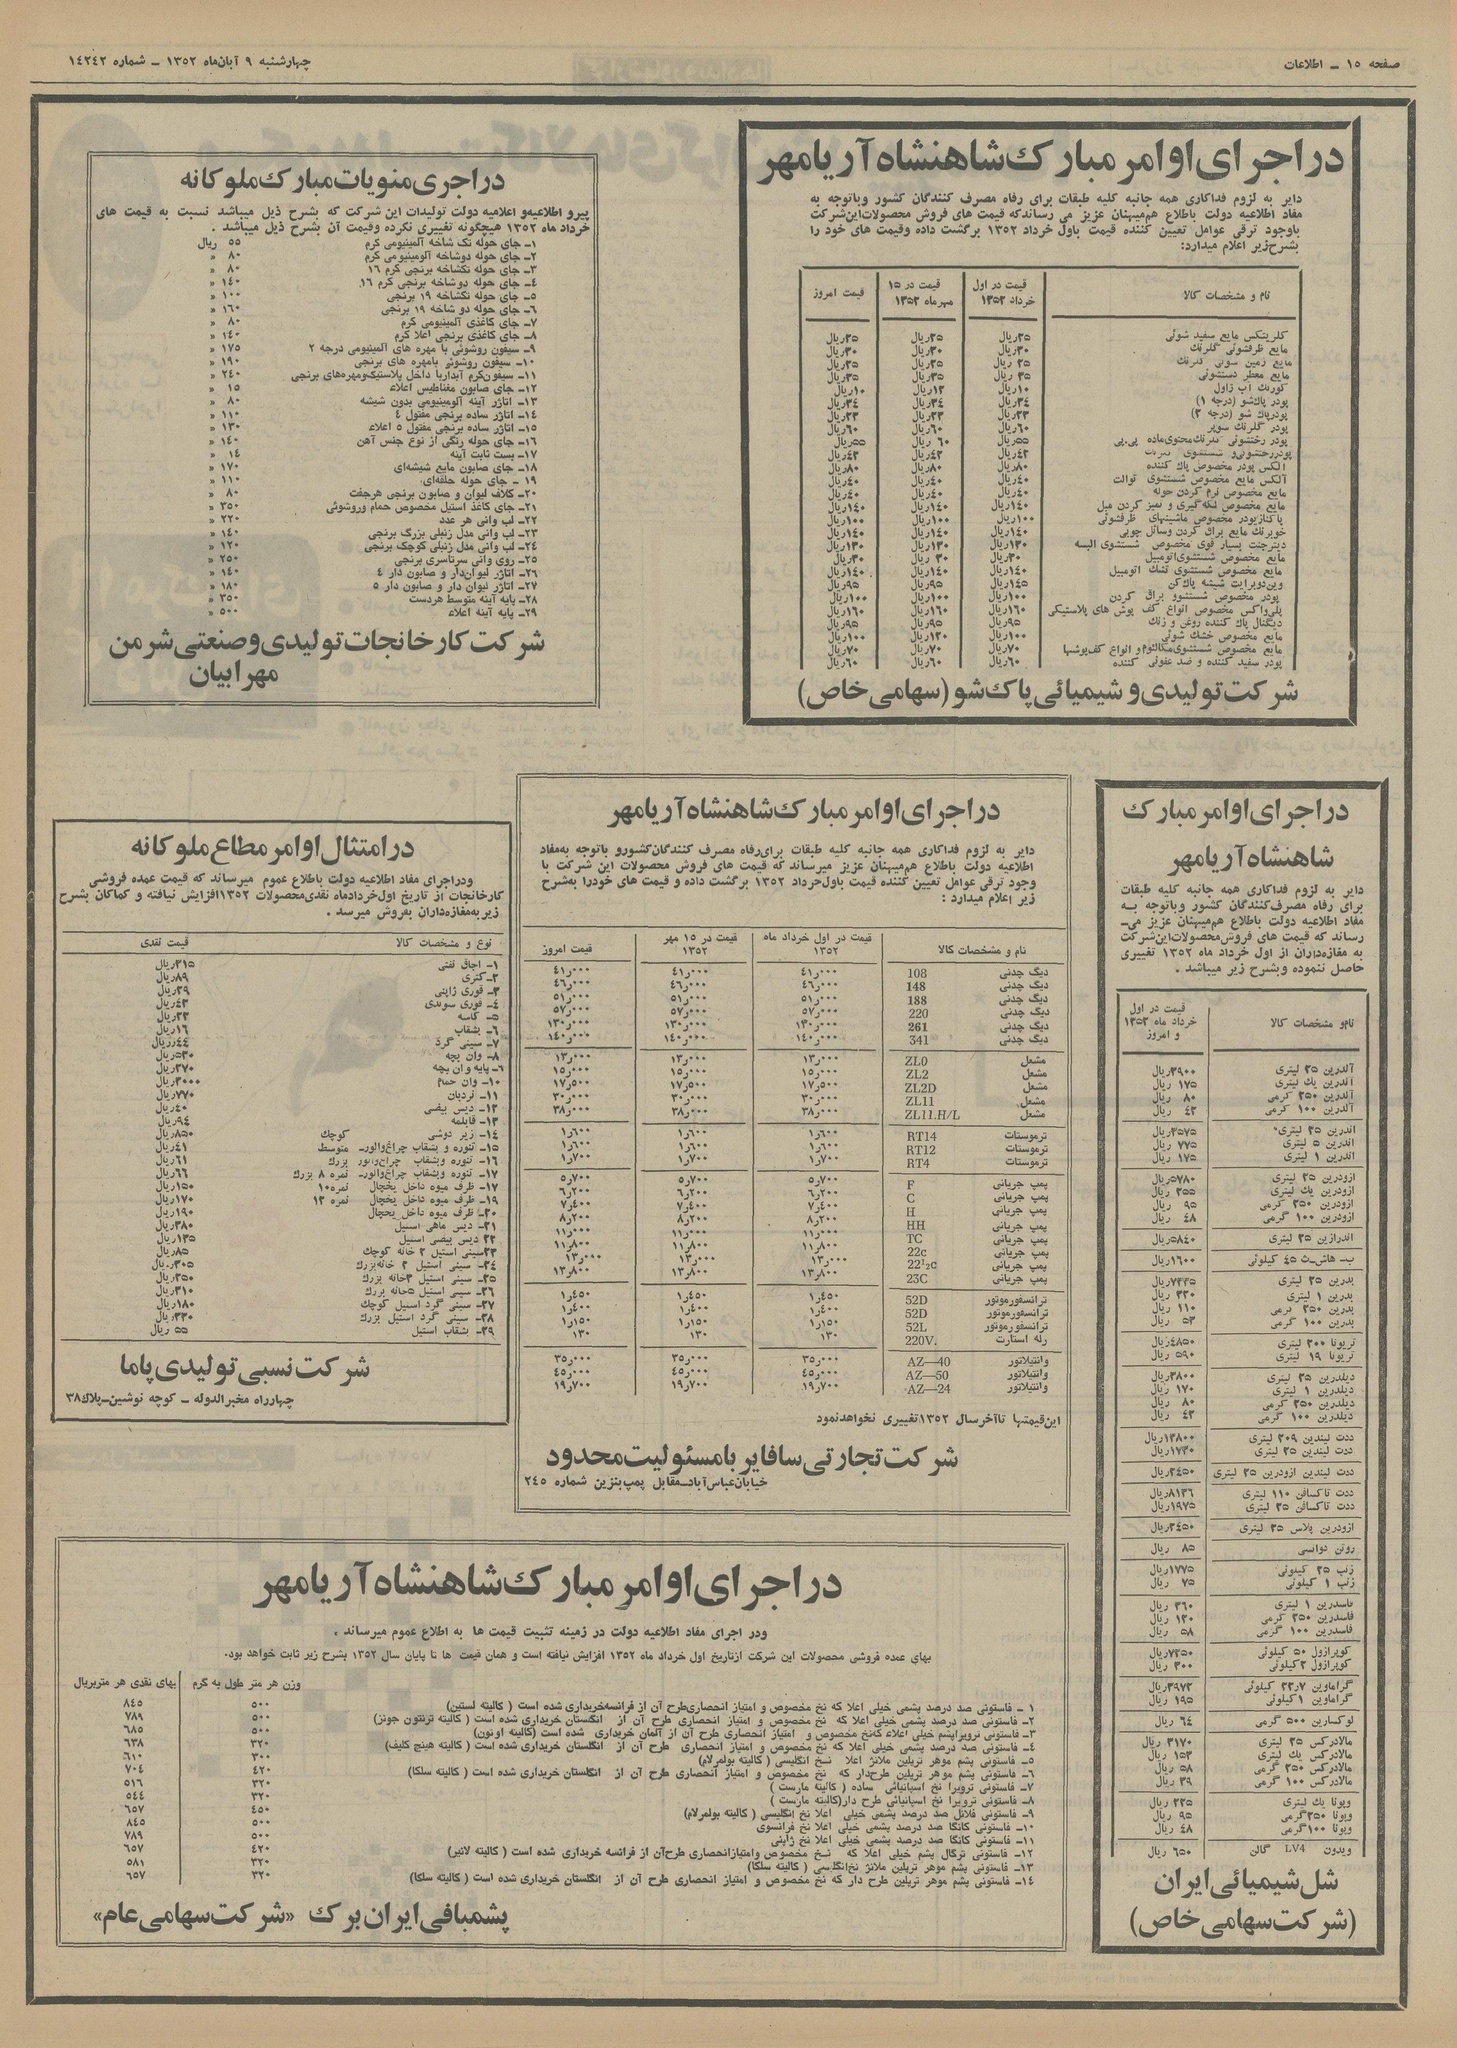 صفحه ۱۵ ـ اطلاعات
چهارشنبه ۹ آبان‌ماه ۱۳۵۲ ـ شماره ۱۴۲۴۲
در اجرای اوامر مبارک شاهنشاه آریامهر
دایر به لزوم فداکاری همه جانبه کلیه طبقات برای رفاه مصرف کنندگان کشور وباتوجه به
مفاد اطلاعیه دولت باطلاع هم‌میهنان عزیز می رساندکه قیمت های فروش محصولات‌این‌شرکت
باوجود ترقی عوامل تعیین کننده قیمت باول خرداد ۱۳۵۲ برگشت داده وقیمت های خود را
بشرح‌زیر اعلام میدارد:
نام و مشخصات کالا
قیمت در اول خرداد ۱۳۵۲
قیمت در ۱۵ مهرماه ۱۳۵۲
قیمت امروز
کلریتکس مایع سفید شوئی ۲۵ریال ۲۵ریال ۲۵ریال
مایع ظرفشوئی گلرنک ۳۰ریال ۳۰ریال ۳۰ریال
مایع معطر دستشوئی ۳۵ ریال ۳۵ریال ۳۵ریال
پودر پاک‌شو (درجه ۱) ۳۴ریال ۳۴ریال ۳۴ریال
پودرپاک شو (درجه ۲) ۲۳ریال ۲۳ریال ۲۳ریال
پودر گلرنک سوپر ۶۰ریال ۶۰ریال ۶۰ریال
آلکس پودر مخصوص پاک کننده ۸۰ریال ۸۰ریال ۸۰ریال
آلکس مایع مخصوص شستشوی توالت ۴۰ریال ۴۰ریال ۴۰ریال
مایع مخصوص نرم کردن حوله ۴۰ریال ۴۰ریال ۴۰ریال
مایع مخصوص لکه‌گیری و تمیز کردن مبل ۱۴۰ریال ۱۴۰ریال ۱۴۰ریال
پاکنازپودر مخصوص ماشینهای ظرفشوئی ۱۰۰ریال ۱۰۰ریال ۱۰۰ریال
خوبرنک مایع براق کردن وسائل چوبی ۱۴۰ریال ۱۴۰ریال ۱۴۰ریال
دیترجنت بسیار قوی مخصوص شستشوی البسه ۱۳۰ریال ۱۳۰ریال ۱۳۰ریال
مایع مخصوص شستشوی‌اتومبیل ۳۰ریال ۳۰ ریال ۳۰ریال
مایع مخصوص شستشوی تشک اتومبیل ۱۴۰ریال ۱۴۰ریال ۱۴۰ریال
پودر مخصوص شستشوو براق کردن ۱۰۰ریال ۱۰۰ریال ۱۰۰ریال
پلی‌واکس مخصوص انواع کف پوش های پلاستیکی ۱۶۰ریال ۱۶۰ریال ۱۶۰ریال
دیگنال پاک کننده روغن و زنک ۹۵ریال ۹۵ریال ۹۵ریال
مایع مخصوص خشک شوئی ۱۰۰ریال ۱۲۰ریال ۱۰۰ریال
پودر سفید کننده و ضد عفونی کننده ۶۰ریال ۶۰ریال ۶۰ریال
شرکت تولیدی و شیمیائی پاک شو (سهامی خاص)
در اجری منویات مبارک ملوکانه
پیرو اطلاعیه‌و اعلامیه دولت تولیدات این شرکت که بشرح ذیل میباشد نسبت به قیمت های
خرداد ماه ۱۳۵۲ هیچگونه تغییری نکرده وقیمت آن بشرح ذیل میباشد .
۱ـ جای حوله تک شاخه آلمینیومی کرم ۵۵ ریال
۲ـ جای حوله دوشاخه آلومینیومی کرم ۸۰ «
۳ـ جای حوله تکشاخه برنجی کرم ۱۶ ۸۰ «
۴ـ جای حوله دوشاخه برنجی کرم ۱۶ ۱۴۰ «
۵ـ جای حوله تکشاخه ۱۹ برنجی ۱۰۰ «
۶ـ جای حوله دو شاخه ۱۹ برنجی ۱۶۰ «
۷ـ جای کاغذی آلمینیومی کرم ۸۰ «
۸ـ جای کاغذی برنجی اعلا کرم ۱۴۰ «
۹ـ سیفون روشوئی با مهره های آلمینیومی درجه ۲ ۱۷۵ «
۱۰ـ سیفون روشوئی بامهره های برنجی ۱۹۰ «
۱۱ـ سیفون‌کرم آبداربا داخل پلاستیک‌ومهره‌های برنجی ۲۴۰ «
۱۲ـ جای صابون مغناطیس اعلاء ۱۵ «
۱۳ـ اتاژر آینه آلومینیومی بدون شیشه ۸۰ «
۱۴ـ اتاژر ساده برنجی مفتول ۴ ۱۱۰ «
۱۵ـ اتاژر ساده برنجی مفتول ۵ اعلاء ۱۳۰ «
۱۶ـ جای حوله رنگی از نوع جنس آهن ۱۴۰ «
۱۷ـ بست ثابت آینه ۱۴ «
۱۸ـ جای صابون مایع شیشه‌ای ۱۷۰ «
۱۹ ـ جای حوله حلقه‌ای ۱۱۰ «
۲۰ـ کلاف لیوان و صابون برنجی هرجفت ۸۰ «
۲۱ـ جای کاغذ استیل مخصوص حمام وروشوئی ۳۵۰ «
۲۲ـ لب وانی هر عدد ۲۲۰ «
۲۳ـ لب وانی مدل زنبلی بزرگ برنجی ۱۴۰ «
۲۴ـ لب وانی مدل زنبلی کوچک برنجی ۱۲۰ «
۲۵ـ روی وانی سرتاسری برنجی ۲۵۰ «
۲۶ـ اتاژر لیوان‌دار و صابون دار ۴ ۱۴۰ «
۲۷ـ اتاژر لیوان دار و صابون دار ۵ ۱۸۰ «
۲۸ـ پایه آینه متوسط هردست ۳۵۰ «
۲۹ـ پایه آینه اعلاء ۵۰۰ «
شرکت کارخانجات تولیدی و صنعتی شرمن
مهرابیان
در اجرای اوامر مبارک
شاهنشاه آریامهر
دایر به لزوم فداکاری همه جانبه کلیه طبقات
برای رفاه مصرف‌کنندگان کشور وباتوجه بـه
مفاد اطلاعیه دولت باطلاع هم‌میهنان عزیز می‌ـ
رساند که قیمت های فروش‌محصولات‌این‌شرکت
به مغازه‌داران از اول خرداد ماه ۱۳۵۲ تغییری
حاصل ننموده وبشرح زیر میباشد .
نام‌و مشخصات کالا
قیمت در اول خرداد ماه ۱۳۵۲ و امروز
آلدرین ۲۵ لیتری ۳۹۰۰ریال
آلدرین یک لیتری ۱۷۵ ریال
آلدرین ۲۵۰ گرمی ۸۰ ریال
آلدرین ۱۰۰ گرمی ۴۲ ریال
اندرین ۵ لیتری ۷۷۵ ریال
اندرین ۱ لیتری ۱۷۵ ریال
ازودرین ۲۵ لیتری ۵۷۸۰ریال
ازودرین یک لیتری ۲۵۵ ریال
ازودرین ۲۵۰ گرمی ۹۵ ریال
ازودرین ۱۰۰ گرمی ۴۸ ریال
اندرازین ۲۵ لیتری ۵۸۴۰ریال
ب‌ـ هاش‌ـث ۴۵ کیلوئی ۱۶۰۰ریال
بدرین ۱ لیتری ۳۲۰ ریال
بدرین ۲۵۰ گرمی ۱۱۰ ریال
بدرین ۱۰۰ گرمی ۵۳ ریال
تریونا ۲۰۰ لیتری ۴۸۵۰ریال
تریونا ۱۹ لیتری ۵۹۰ ریال
دیلدرین ۲۵ لیتری ۳۸۰۰ریال
دیلدرین ۱ لیتری ۱۷۰ ریال
دیلدرین ۲۵۰ گرمی ۸۰ ریال
دیلدرین ۱۰۰ گرمی ۴۲ ریال
ددت لیندین ۲۰۹ لیتری ۱۳۸۰۰ریال
ددت لیندین ۲۵ لیتری ۱۷۳۰ریال
ددت لیندین ازودرین ۲۵ لیتری ۲۴۵۰ریال
ددت تاکسافن ۱۱۰ لیتری ۸۱۳۶ریال
ددت تاکسافن ۲۵ لیتری ۱۹۷۵ریال
ازودرین پلاس ۲۵ لیتری ۲۴۵۰ریال
۸۵ ریال
زنب ۲۵ کیلوئی ۱۷۷۵ریال
زنب ۱ کیلوئی ۷۵ ریال
فاسدرین ۱ لیتری ۳۶۰ ریال
فاسدرین ۲۵۰ گرمی ۱۲۰ ریال
فاسدرین ۱۰۰ گرمی ۵۸ ریال
کوپرازول ۵۰ کیلوئی ۷۲۵۰ریال
کوپرازول ۲کیلوئی ۳۰۰ ریال
گراماوین ۲۲٫۷ کیلوئی ۳۹۷۲ریال
گراماوین ۱کیلوئی ۱۹۵ ریال
لوکسارین ۵۰۰ گرمی ۶۴ ریال
مالادرکس ۲۵ لیتری ۳۱۷۰ ریال
مالادرکس یک لیتری ۱۵۳ ریال
مالادرکس ۲۵۰ گرمی ۵۸ ریال
مالادرکس ۱۰۰ گرمی ۲۹ ریال
ویونا یک لیتری ۲۲۵ ریال
ویونا ۲۵۰گرمی ۹۵ ریال
ویونا ۱۰۰گرمی ۴۸ ریال
ویدون LV4 گالن ۶۵۰ ریال
شل شیمیائی ایران
(شرکت سهامی خاص)
در اجرای اوامر مبارک شاهنشاه آریامهر
دایر به لزوم فداکاری همه جانبه کلیه طبقات برای‌رفاه مصرف کنندگان‌کشورو باتوجه به‌مفاد
اطلاعیه دولت باطلاع هم‌میهنان عزیز میرساند که قیمت های فروش محصولات این شرکت با
وجود ترقی عوامل تعیین کننده قیمت باول‌خرداد ۱۳۵۲ برگشت داده و قیمت های خودرا به‌شرح
زیر اعلام میدارد :
نام و مشخصات کالا
قیمت در اول خرداد ماه ۱۳۵۲
قیمت در ۱۵ مهر ۱۳۵۲
قیمت امروز
دیگ چدنی 108 ۴۱٫۰۰۰ ۴۱٫۰۰۰ ۴۱٫۰۰۰
دیگ چدنی 148 ۴۶٫۰۰۰ ۴۶٫۰۰۰ ۴۶٫۰۰۰
دیگ چدنی 188 ۵۱٫۰۰۰ ۵۱٫۰۰۰ ۵۱٫۰۰۰
دیگ چدنی 220 ۵۷٫۰۰۰ ۵۷٫۰۰۰ ۵۷٫۰۰۰
دیگ چدنی 261 ۱۳۰٫۰۰۰ ۱۳۰٫۰۰۰ ۱۳۰٫۰۰۰
دیگ چدنی 341 ۱۴۰٫۰۰۰ ۱۴۰٫۰۰۰ ۱۴۰٫۰۰۰
مشعل ZL0 ۱۳٫۰۰۰ ۱۳٫۰۰۰ ۱۳٫۰۰۰
مشعل ZL2 ۱۵٫۰۰۰ ۱۵٫۰۰۰ ۱۵٫۰۰۰
مشعل ZL2D ۱۷٫۵۰۰ ۱۷٫۵۰۰ ۱۷٫۵۰۰
مشعل ZL11 ۳۰٫۰۰۰ ۳۰٫۰۰۰ ۳۰٫۰۰۰
مشعل ZL11.H/L ۳۸٫۰۰۰ ۳۸٫۰۰۰ ۳۸٫۰۰۰
ترموستات RT14 ۱٫۶۰۰ ۱٫۶۰۰ ۱٫۶۰۰
ترموستات RT12 ۱٫۶۰۰ ۱٫۶۰۰ ۱٫۶۰۰
ترموستات RT4 ۱٫۷۰۰ ۱٫۷۰۰ ۱٫۷۰۰
پمپ جریانی F ۵٫۷۰۰ ۵٫۷۰۰ ۵٫۷۰۰
پمپ جریانی C ۶٫۲۰۰ ۶٫۲۰۰ ۶٫۲۰۰
پمپ جریانی H ۷٫۴۰۰ ۷٫۴۰۰ ۷٫۴۰۰
پمپ جریانی HH ۸٫۲۰۰ ۸٫۲۰۰ ۸٫۲۰۰
پمپ جریانی TC ۱۱٫۰۰۰ ۱۱٫۰۰۰ ۱۱٫۰۰۰
پمپ جریانی 22c ۱۱٫۸۰۰ ۱۱٫۸۰۰ ۱۱٫۸۰۰
پمپ جریانی 22½c ۱۳٫۰۰۰ ۱۳٫۰۰۰ ۱۳٫۰۰۰
پمپ جریانی 23C ۱۳٫۸۰۰ ۱۳٫۸۰۰ ۱۳٫۸۰۰
ترانسفورموتور 52D ۱٫۴۵۰ ۱٫۴۵۰ ۱٫۴۵۰
ترانسفورموتور 52D ۱٫۴۰۰ ۱٫۴۰۰ ۱٫۴۰۰
ترانسفورموتور 52L ۱٫۱۵۰ ۱٫۱۵۰ ۱٫۱۵۰
رله استارت 220V. ۱۳۰ ۱۳۰ ۱۳۰
وانتیلاتور AZ—40 ۳۵٫۰۰۰ ۳۵٫۰۰۰ ۳۵٫۰۰۰
وانتیلاتور AZ—50 ۴۵٫۰۰۰ ۴۵٫۰۰۰ ۴۵٫۰۰۰
وانتیلاتور AZ—24 ۱۹٫۷۰۰ ۱۹٫۷۰۰ ۱۹٫۷۰۰
این‌قیمتها تاآخرسال ۱۳۵۲تغییری نخواهدنمود
شرکت تجارتی سافایر بامسئولیت محدود
خیابان‌عباس‌آباد‌ـ‌مقابل پمپ‌بنزین شماره ۲۴۵
در امتثال اوامر مطاع ملوکانه
ودراجرای مفاد اطلاعیه دولت باطلاع عموم میرساند که قیمت عمده فروشی
کارخانجات از تاریخ اول‌خردادماه نقدی‌محصولات ۱۳۵۲افزایش نیافته و کماکان بشرح
زیر‌به‌مغازه‌داران بفروش میرسد .
نوع و مشخصات کالا
قیمت نقدی
۱ـ اجاق نفتی ۳۱۵ریال
۲ـ کتری ۸۹ریال
۳ـ قوری ژاپنی ۲۹ریال
۴ـ قوری سوئدی ۴۳ریال
۵ـ کاسه ۲۲ریال
۶ـ بشقاب ۱۶ریال
۷ـ سینی گرد ۴۴ریال
۸ـ وان بچه ۵۳۰ریال
۹ـ پایه وان بچه ۲۷۰ریال
۱۰ـ وان حمام ۳۰۰۰ریال
۱۱ـ نردبان ۷۷۰ریال
۱۲ـ دیس بیضی ۴۰ریال
۱۳ـ قابلمه ۹۴ریال
۱۴ـ زیر دوشی کوچک ۸۵۰ریال
۱۵ـ تنوره و بشقاب چراغ‌والورـ متوسط ۴۱ریال
۱۶ـ تنوره وبشقاب چراغ‌والور بزرگ ۶۱ریال
۱۷ـ تنوره وبشقاب چراغ‌والورـ نمره ۸ بزرگ ۶۶ریال
۱۷ـ ظرف میوه داخل یخچال نمره۱۰ ۱۵۰ریال
۱۹ـ ظرف میوه داخل یخچال نمره ۱۲ ۱۷۰ریال
۲۰ـ ظرف میوه داخل یخچال ۱۹۰ریال
۲۱ـ دیس ماهی استیل ۳۸۰ریال
۲۲ دیس بیضی استیل ۱۲۵ریال
۲۳ـسینی استیل ۲ خانه کوچک ۸۵ریال
۲۴ـ سینی استیل ۲ خانه‌بزرگ ۲۰۵ریال
۲۵ـ سینی استیل ۳خانه بزرگ ۲۵۰ریال
۲۶ـ سینی استیل ۵خانه بزرگ ۳۱۰ریال
۲۷ـ سینی گرد استیل کوچک ۱۸۰ریال
۲۸ـ سینی گرد استیل بزرگ ۳۲۰ریال
۲۹ـ بشقاب استیل ۵۵ ریال
شرکت نسبی تولیدی پاما
چهارراه مخبرالدوله ـ کوچه نوشین‌ـ‌پلاک۳۸
در اجرای اوامر مبارک شاهنشاه آریامهر
ودر اجرای مفاد اطلاعیه دولت در زمینه تثبیت قیمت ها به اطلاع عموم میرساند .
بهای عمده فروشی محصولات این شرکت ازتاریخ اول خرداد ماه ۱۳۵۲ افزایش نیافته است و همان قیمت ها تا پایان سال ۱۳۵۲ بشرح زیر ثابت خواهد بود.
وزن هر متر طول به گرم
بهای نقدی هر متربریال
۱ ـ فاستونی صد درصد پشمی خیلی اعلا که نخ مخصوص و امتیاز انحصاری‌طرح آن از فرانسه‌خریداری شده است ( کالیته لستین) ۵۰۰ ۸۴۵
۲ـ فاستونی صد درصد پشمی خیلی اعلا که نخ مخصوص و امتیاز انحصاری طرح آن از انگلستان خریداری شده است ( کالیته ترنتون جونز) ۵۰۰ ۷۸۹
۳ـ فاستونی تروپراپشم خیلی اعلاء که‌نخ مخصوص و امتیاز انحصاری طرح آن از آلمان خریداری شده است (کالیته اونون) ۵۰۰ ۶۸۵
۴ـ فاستونی صد درصد پشمی خیلی اعلا که نخ مخصوص و امتیاز انحصاری طرح آن از انگلستان خریداری شده است ( کالیته هینچ کلیف) ۳۲۰ ۶۳۸
۵ـ فاستونی پشم موهر تریلین ملانژ اعلا نـخ انگلیسی ( کالیته بولمرلام) ۳۰۰ ۶۱۰
۶ـ فاستونی پشم موهر تریلین طرح‌دار که نخ مخصوص و امتیاز انحصاری طرح آن از انگلستان خریداری شده است ( کالیته سلکا) ۴۲۰ ۷۰۴
۷ـ فاستونی تروپرا نخ اسپانیائی ساده ( کالیته مارست ) ۳۲۰ ۵۱۶
۸ـ فاستونی تروپرا نخ اسپانیائی طرح دار(کالیته مارست ) ۳۲۰ ۵۴۴
۹ـ فاستونی فلانل صد درصد پشمی خیلی اعلا نخ انگلیسی ( کالیته بولمرلام) ۴۵۰ ۶۵۷
۱۰ـ فاستونی کانگا صد درصد پشمی خیلی اعلا نخ فرانسوی ۵۰۰ ۸۴۵
۱۱ـ فاستونی کانگا صد درصد پشمی خیلی اعلا نخ ژاپنی ۵۰۰ ۷۸۹
۱۲ـ فاستونی ترگال پشم خیلی اعلا که نـخ مخصوص وامتیازانحصاری طرح‌آن از فرانسه خریداری شده است ( کالیته لاتیر) ۴۲۰ ۶۵۷
۱۳ـ فاستونی پشم موهر تریلین ملانژ نخ‌انگلیسی ( کالیته سلکا) ۳۲۰ ۵۸۱
۱۴ـ فاستونی پشم موهر تریلین طرح دار که نخ مخصوص و امتیاز انحصاری طرح آن از انگلستان خریداری شده است ( کالیته سلکا) ۳۲۰ ۶۵۷
پشمبافی ایران برک «شرکت سهامی عام»